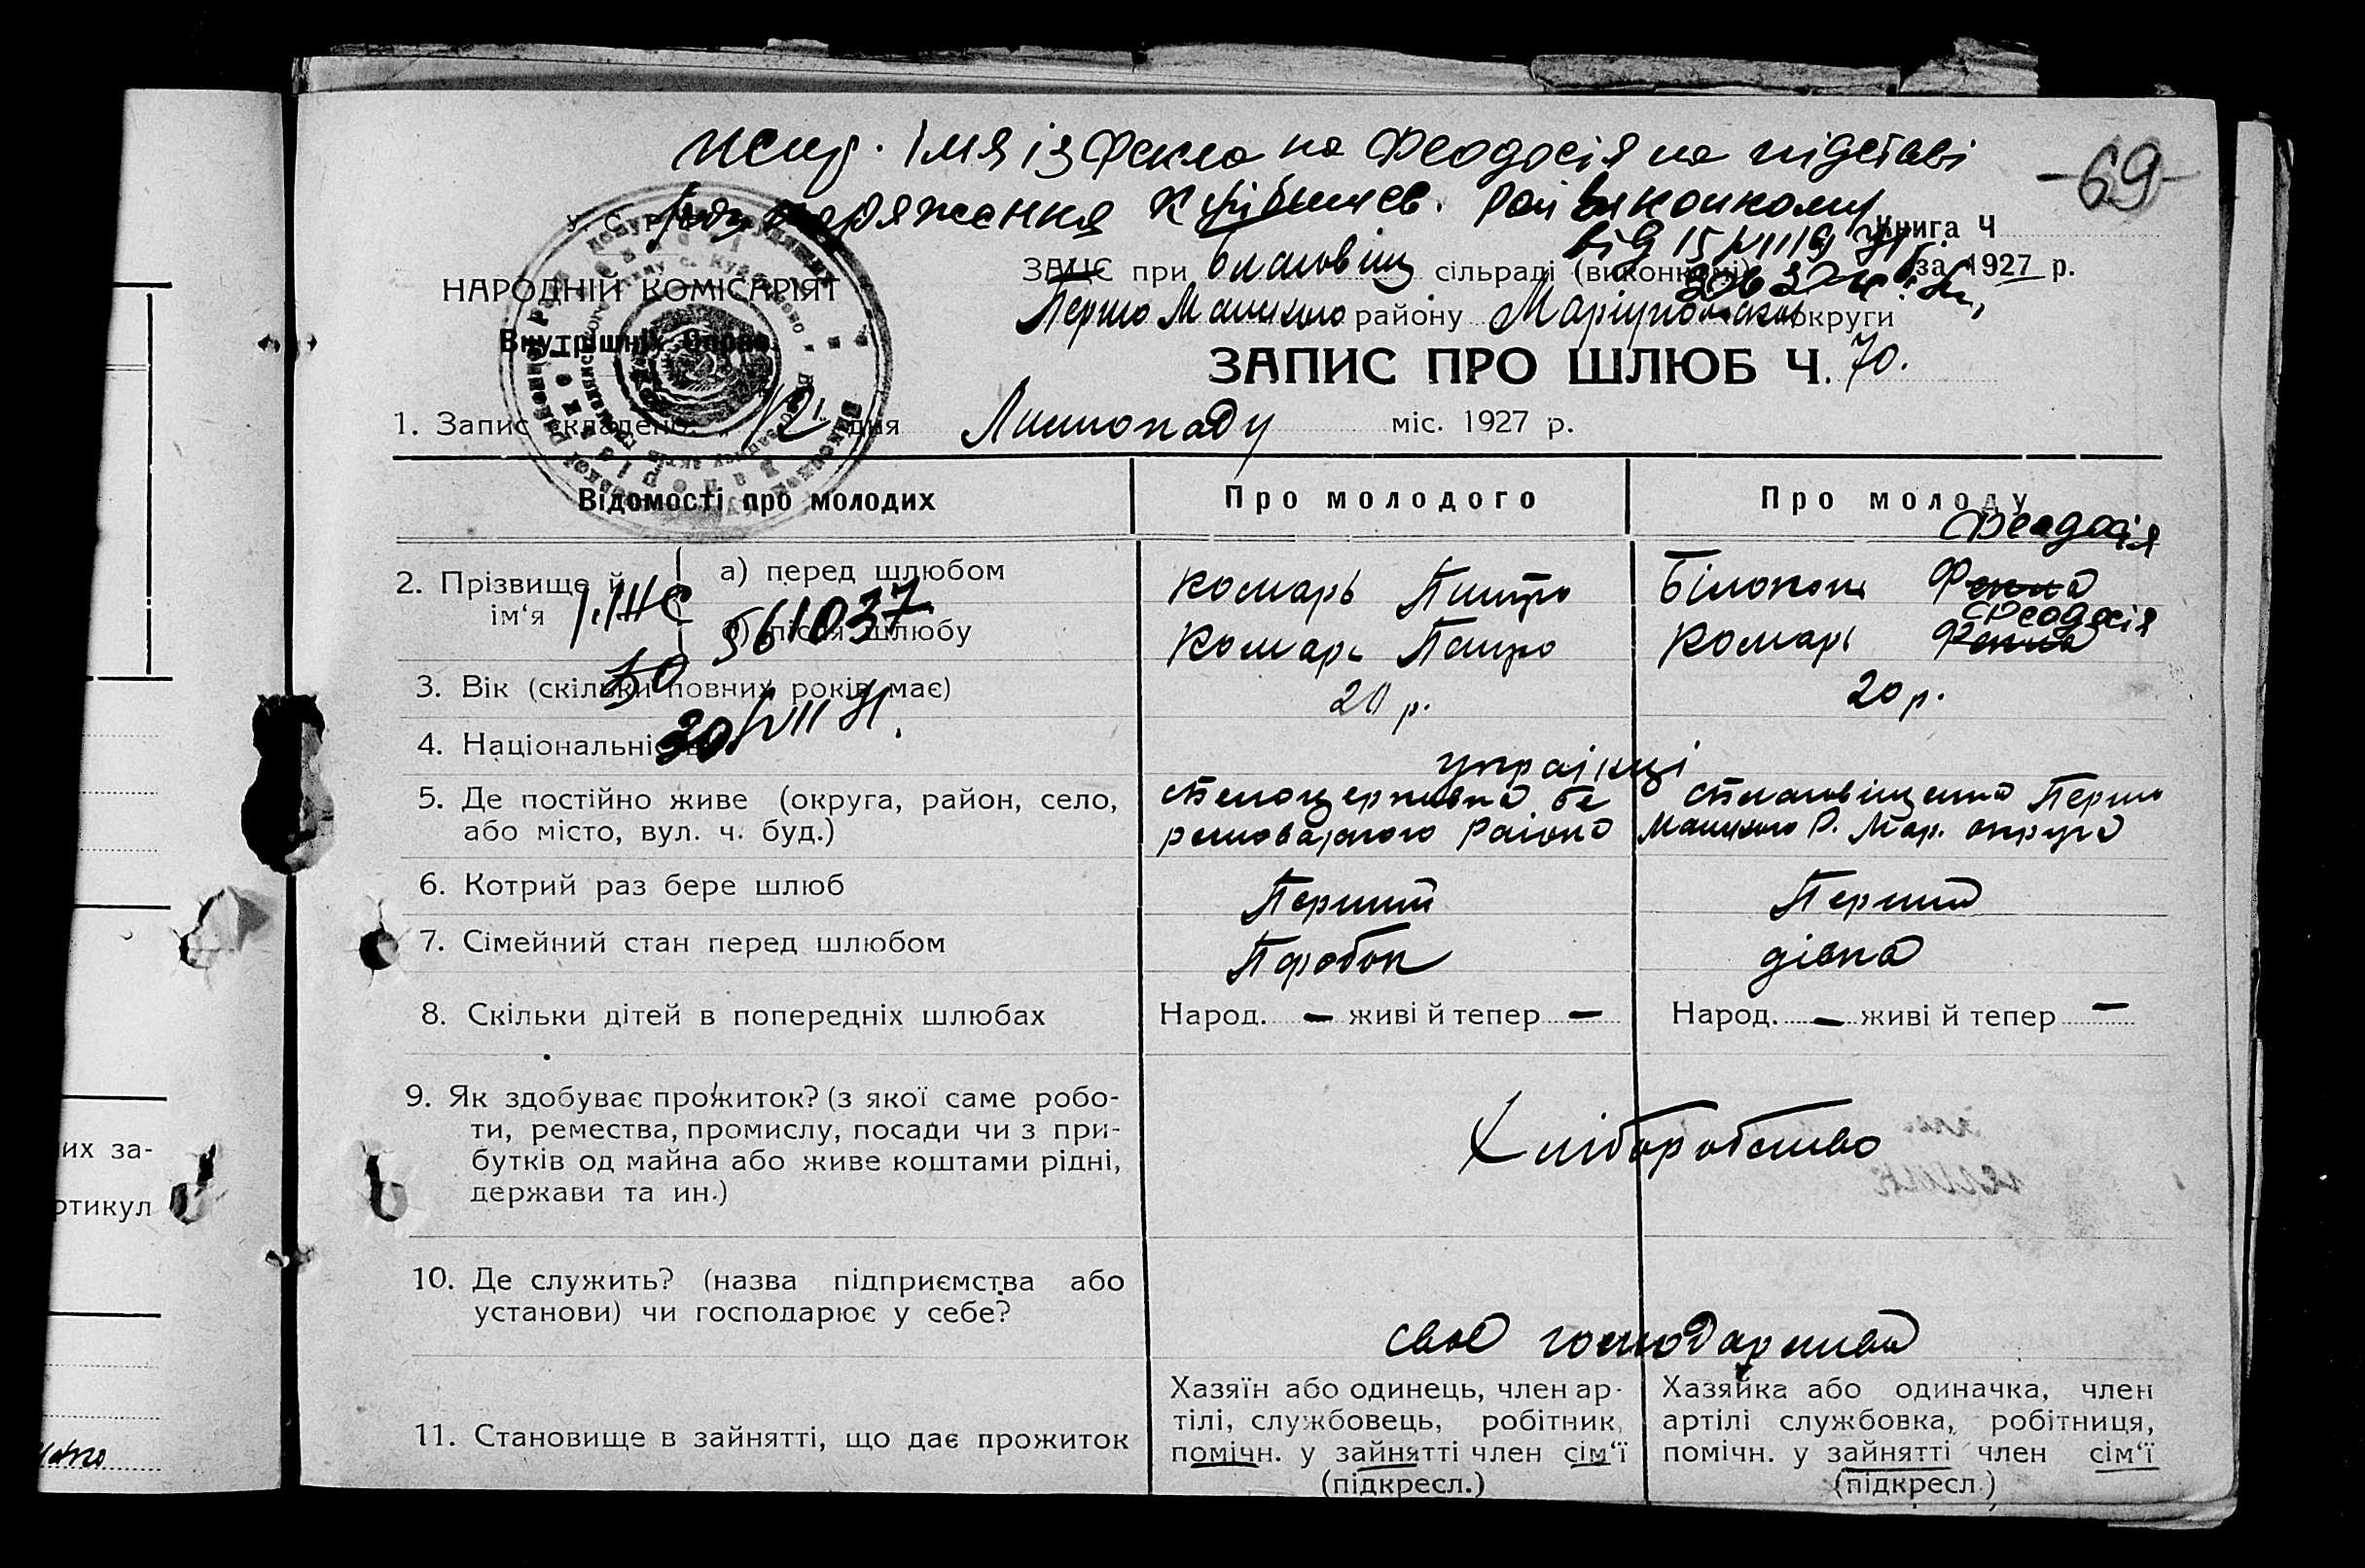 испр. Імя із Фекла на Феодосія на підставі
розпоряження Куйбишев. Рай виконкому
-69-
У. С. Р. Р.
від 15/VIII 91
Книга Ч
ЗАЦС при сільраді (виконкомі) за 1927 р.
НАРОДНІЙ КОМІСАРІЯТ
Внутрішніх Справ.
району Маріупольської округи
ЗАПИС ПРО ШЛЮБ Ч. 70.
1. Запис складено: „12" дня Листопаду міс. 1927 р.
Відомості про молодих
Про молодого
Про молоду
Феодосія
2. Прізвище й ім‘я
а) перед шлюбом
Комарь Питро
Білоконь Фекла
Феодосія
б) після шлюбу
Комарь Петро
Комарь Фекла
І.ЖС 561037
30
3. Вік (скільки повних років має)
20 р.
20 р.
30/VII 91.
4. Національність
українці
5. Де постійно живе (округа, район, село,
або місто, вул. ч. буд.)
району
Р. Мар. округа
6. Котрий раз бере шлюб
Перший
Перший
7. Сімейний стан перед шлюбом
Поробок
дівка
8. Скільки дітей в попередніх шлюбах
Народ. — живі й тепер —
Народ. — живі й тепер —
9. Як здобуває прожиток? (з якої саме робо-
ти, ремества, промислу, посади чи з при-
бутків од майна або живе коштами рідні,
держави та ин.)
Хліборобство
10. Де служить? (назва підприємства або
установи) чи господарює у себе?
своє господарство
11. Становище в зайнятті, що дає прожиток
Хазяїн або одинець, член ар-
тілі, службовець, робітник,
помічн. у зайнятті член сім‘ї
(підкресл.)
Хазяйка або одиначка, член
артілі службовка, робітниця,
помічн. у зайнятті член сім‘ї
(підкресл.)
их за-
ртикул